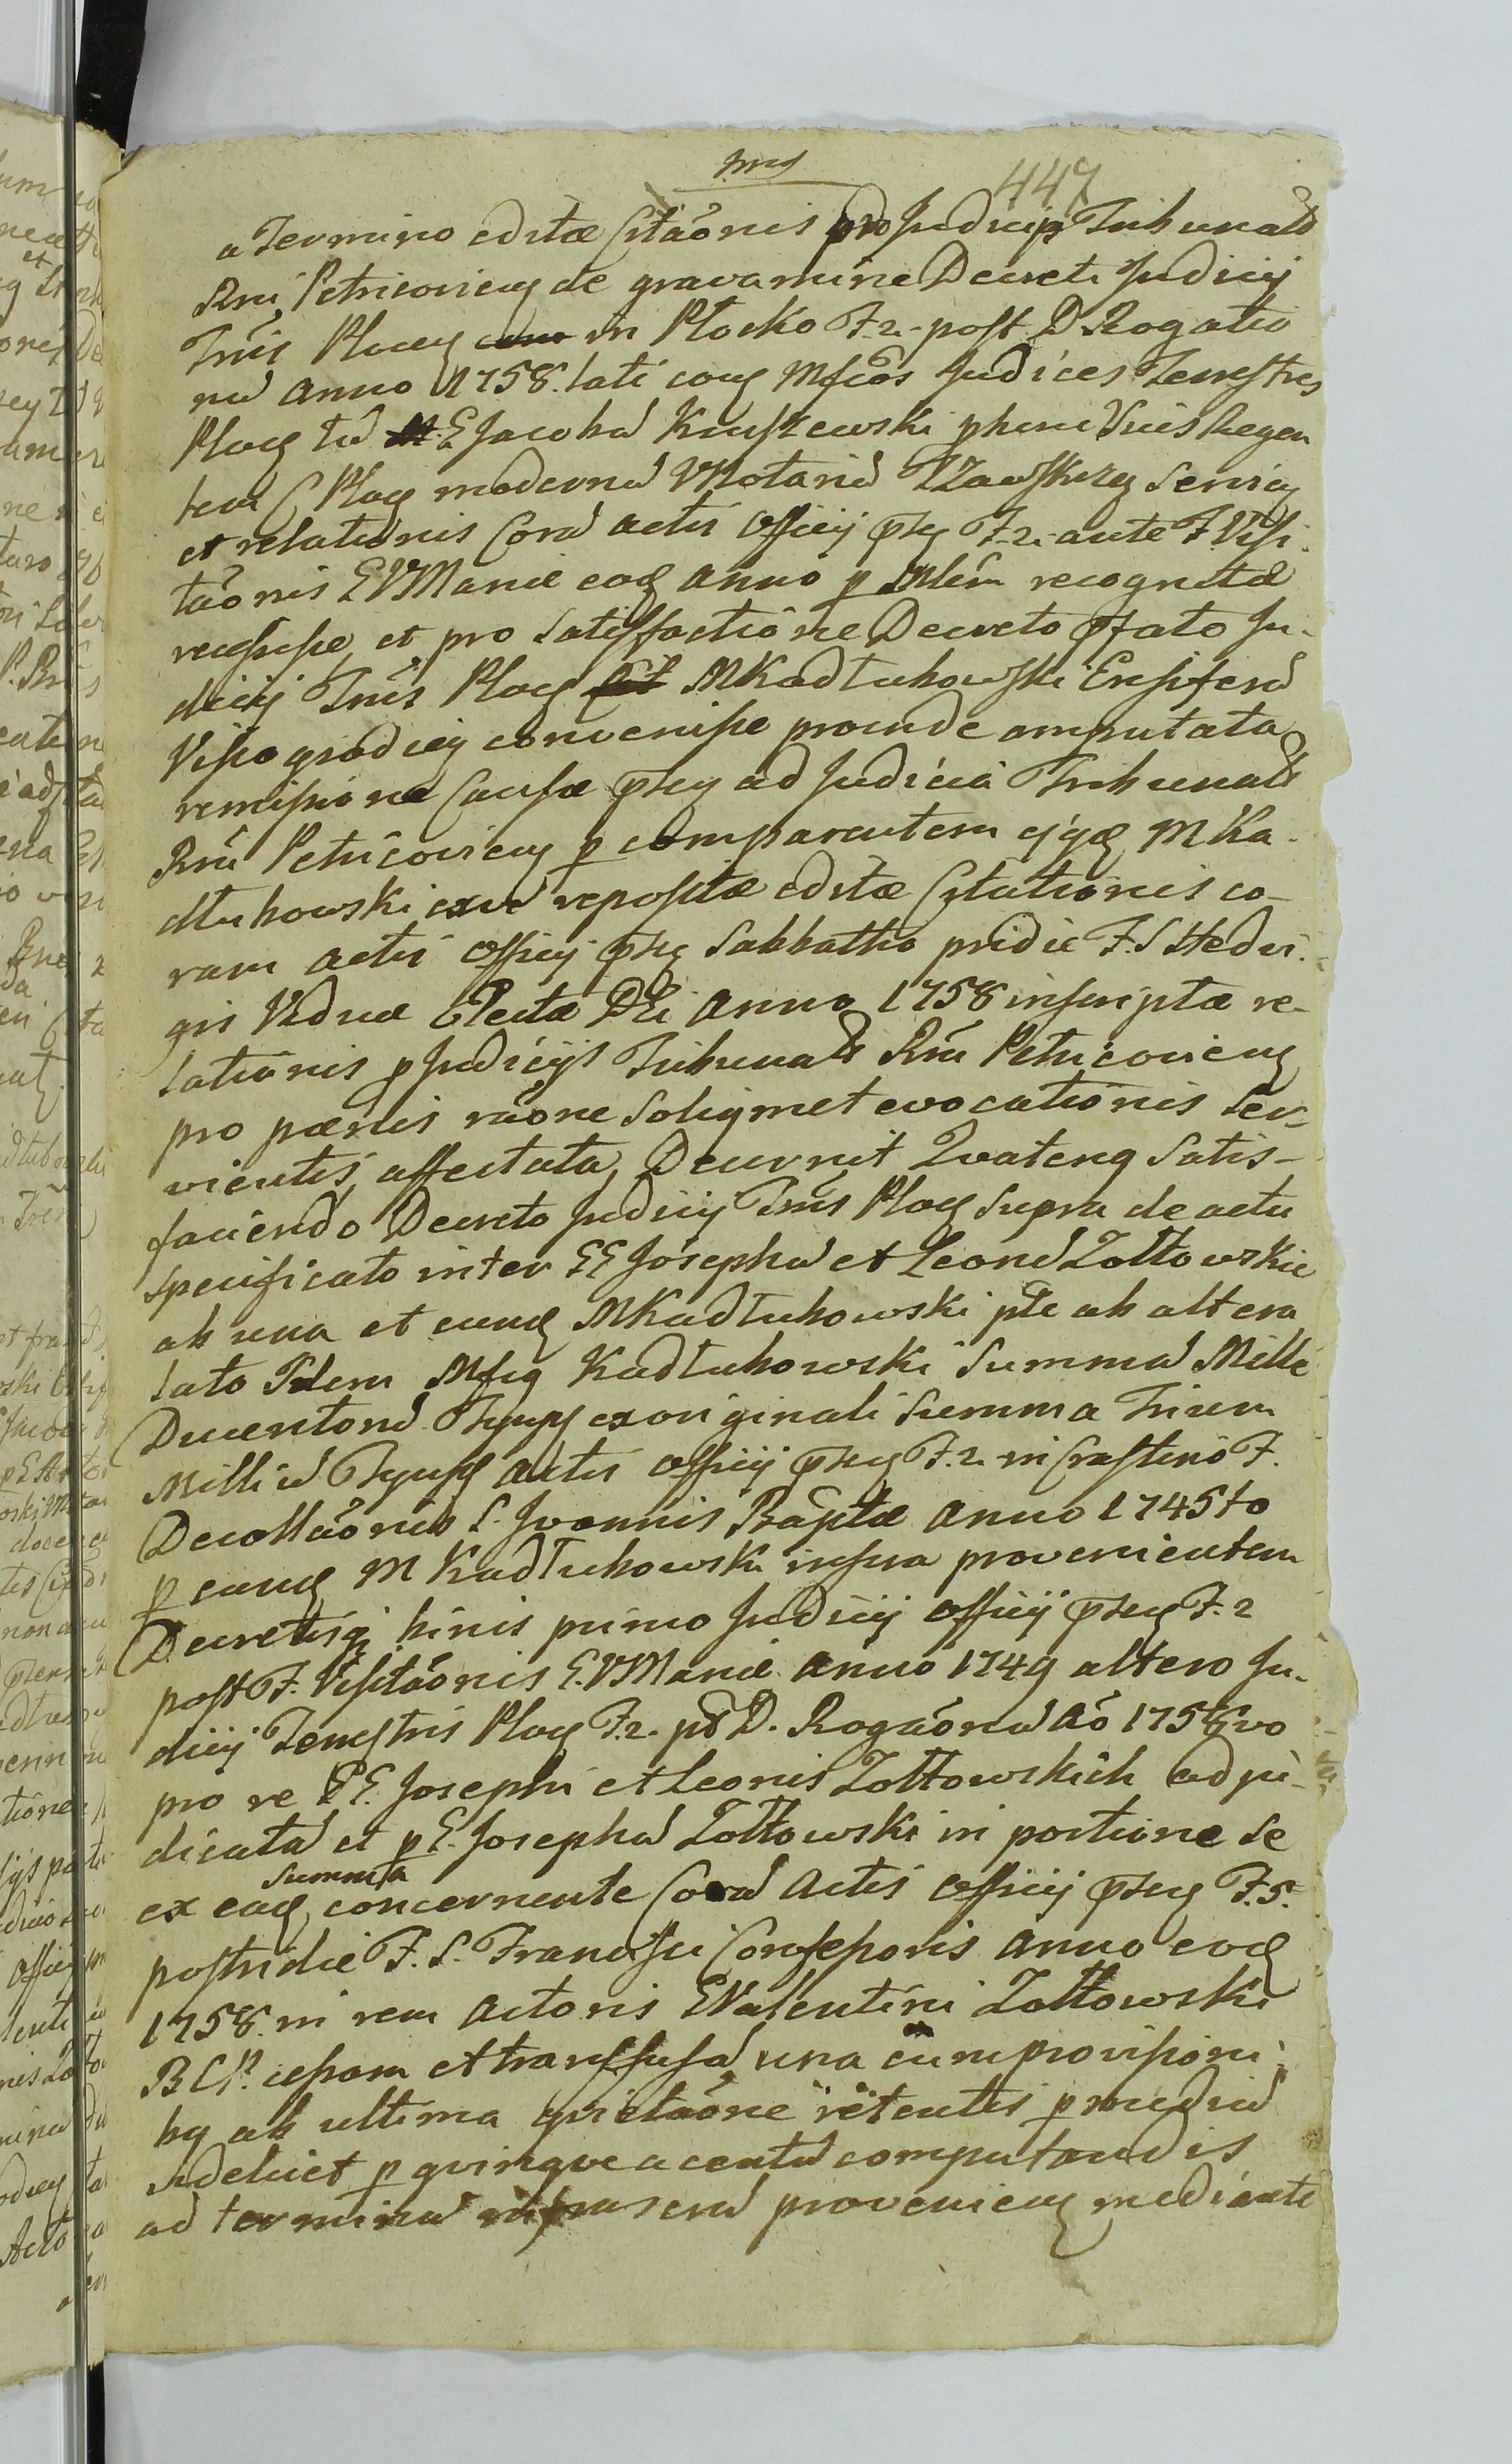 447
a Termino editæ Citãonis pro Judicijs Tribunals
Rnĩ Petricovien de gravamine Decreti Judicij
Trris Plocen in Płocko F. 2. post D. Rogatio
nũ anno 1758. lati coram Mfcos Judices Terrestres
Plocen tũ E Jacobũ Kruszewski Regen
tem C Plocen modernũ Notariũ Zawskrzen
et relationis Corã actis Officij pñtis F. 2. ante F. Visi
tãonis B V Mariæ eod anno p Mlem recognitæ
recessisse, et pro Satisfactione Decreto pfato Ju-
dicij Trris Ploc M Kadłubowski Ensiferũ
Vissogrodien convenisse proinde amputata
remissione Causæ pñtis ad Judicia Tribunals
Rnĩ Petricovien p comparentem ejq M Ka-
dłubowski repositæ editæ Citationis co-
ram actis Officij pñtis Sabbatho pridie F. S Hedvi-
gis Viduæ Electæ DEi anno 1758 inscriptæ re-
lationis p Judicijs Tribunals Rnĩ Petricovien
pro pænis rãone Soliusmet evocationis Ser-
vientis, affectata, Decrevit Quatenq Satis-
faciendo Decreto Judicij Trris Ploc Supra de actu
specificato inter EE Josephũ et Leonẽ Zołtowskie
ab una et eund M Kadłubowski pte ab altera
lato Idem Mfcq Kadłubowski Summã Mille
Ducentorũ Tynff ex originali Summa Trium
Milliũ Tynff actis Officij pñtis F. 2. in Crastino F.
Decollãonis S. Joannis Baptæ anno 1745to
p eund M Kadłubowski provenientem
Decretisq binis primo Judicij Officij pñtis F. 2
post F. Visitãonis B. V Mariæ anno 1749 altero Ju-
dicij Terrestris Ploc F. 2. pt D. Rogãonũ Aõ 1758vo
pro re EE. Josephi et Leonis Zołtowskich adju-
dicatã et p E. Josephũ Zołtowski in portione Se
summa
ex ead, concernente Corã Actis Officij pñtis F. 5.
postridie F. S. Francisci Confessoris anno eod
1758. in rem Actoris E Valentini Zołtowski
B C P. cessam et transfusã una cum provisioni-
bq ab ultima qvietãone retentis p mediũ
videlicet p qvinqve a centũ computandis
ad terminũ provenien mediante